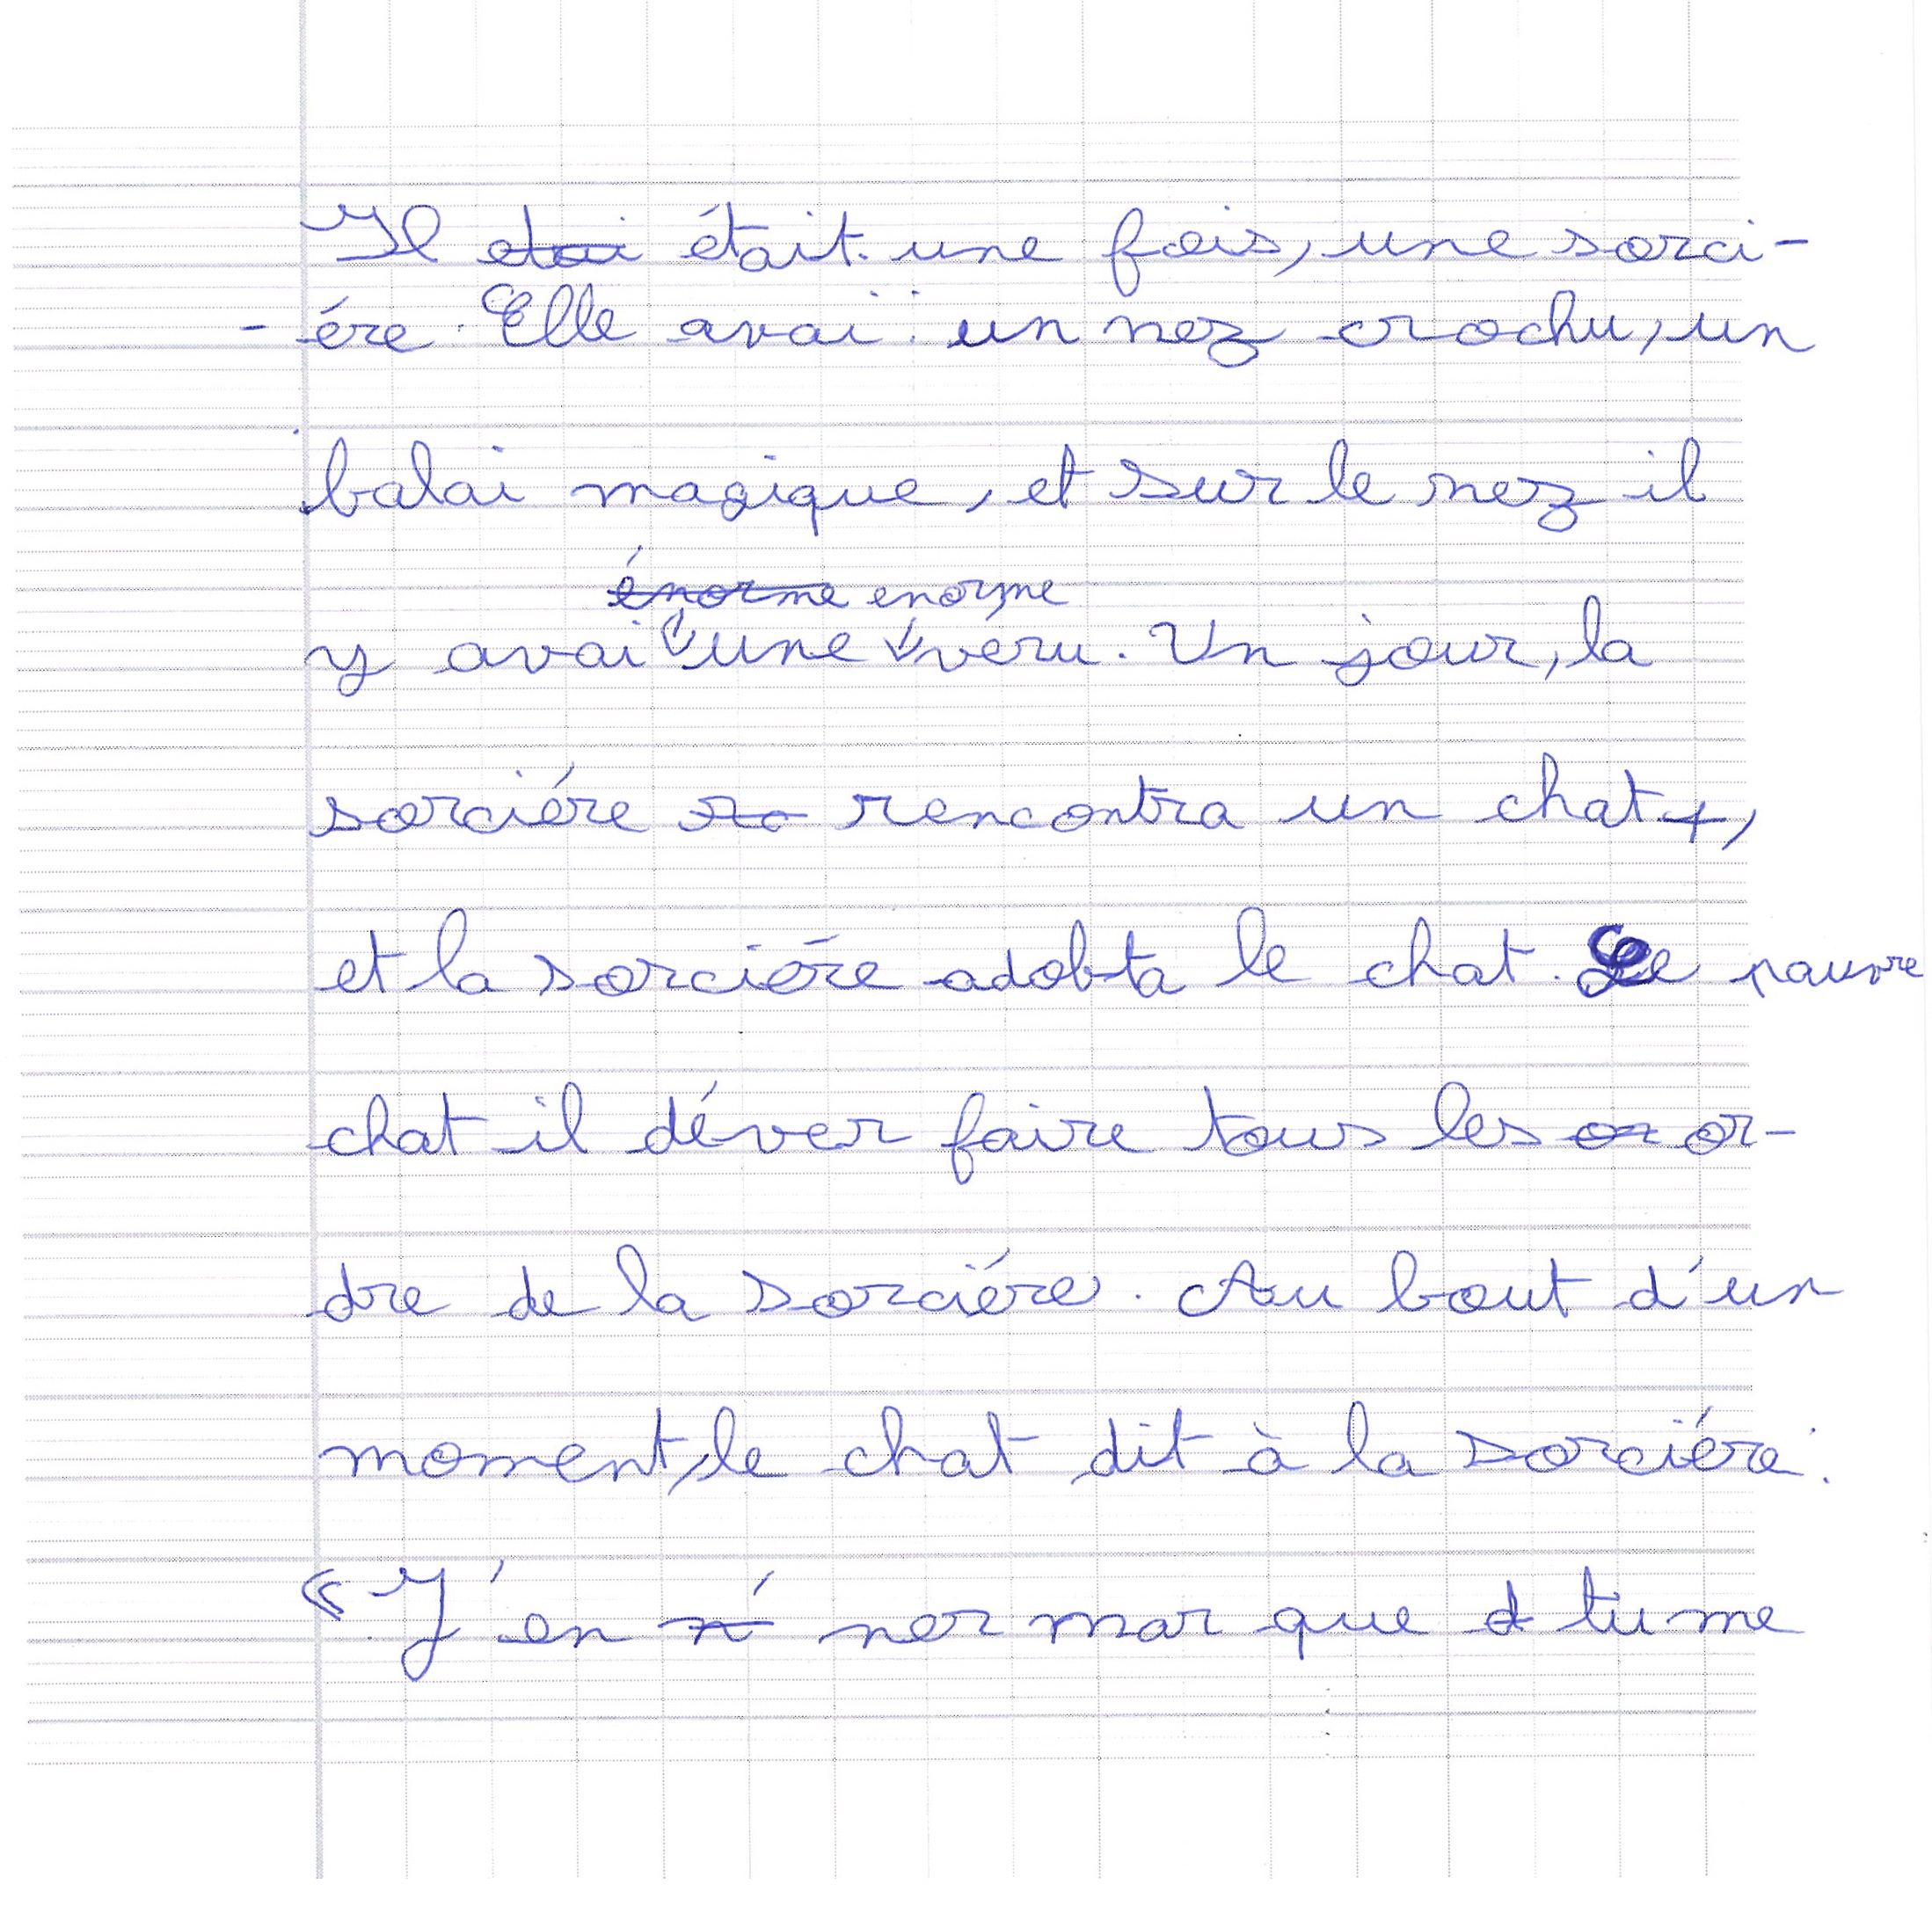 Il etai était une fois, une sorci-
- ére. Elle avai un nez crochu, un
balai magique, et sur le nez il
énorme enorme
y avai une véru. Un jour, la
sorciére re rencontra un chat,
et la sorciére adobta le chat. Le pauvre
chat il déver faire tous les or or-
dre de la sorciére. Au bout d'un
moment, le chat dit à la sorciére :
« J'en n' ner mar que d tu me